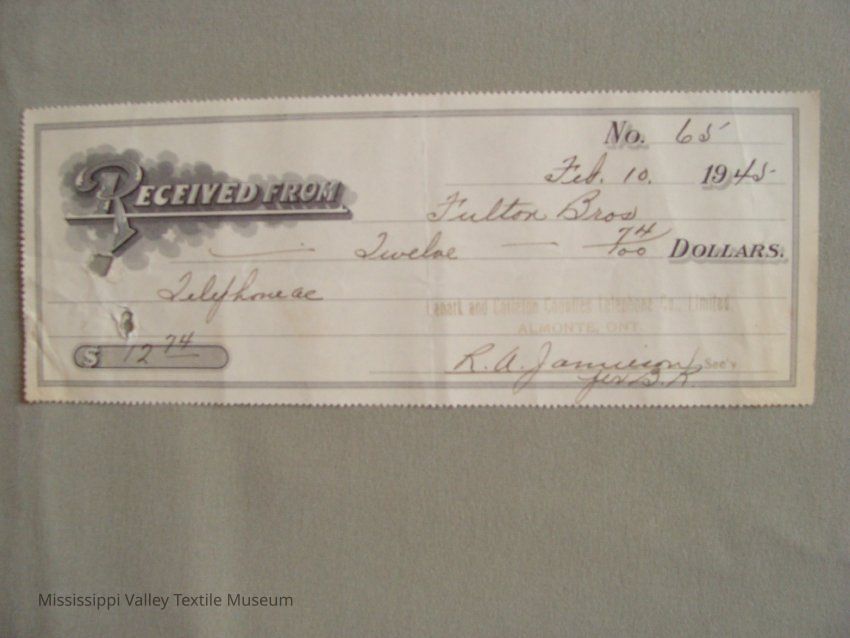 No. 65
Feb. 10. 1945
RECEIVED FROM
Fulton Bros
Twelve 74/100 DOLLARS.
Telephone ac
Lanark and Carleton Counties Telephone Co., Limited
ALMONTE, ONT.
$ 12 74
R. A. Jamieson Sec'y
per B. K.
Mississippi Valley Textile Museum